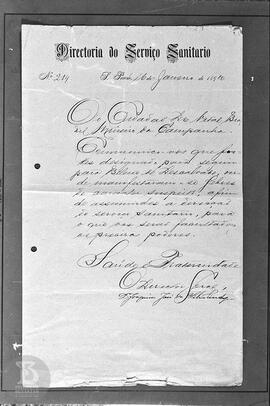 Directoria do Serviço Sanitario
Nº 219 S. Paulo, de Janeiro de 189
Ao Cidadão Dr. Vital Bra
zil Mineiro da Campanha
Communico-vos que fos-
tes designado, para seguir
para Belem do Descalvado, on-
de manifestaram-se febres
de caracter suspeito, afim
de assumirdes a direcção
do serviço Sanitario, para
o que vos serão facultados
os precisos poderes.
Saúde e Fraternidade
O Director Geral,
Dr. Joaquim José da